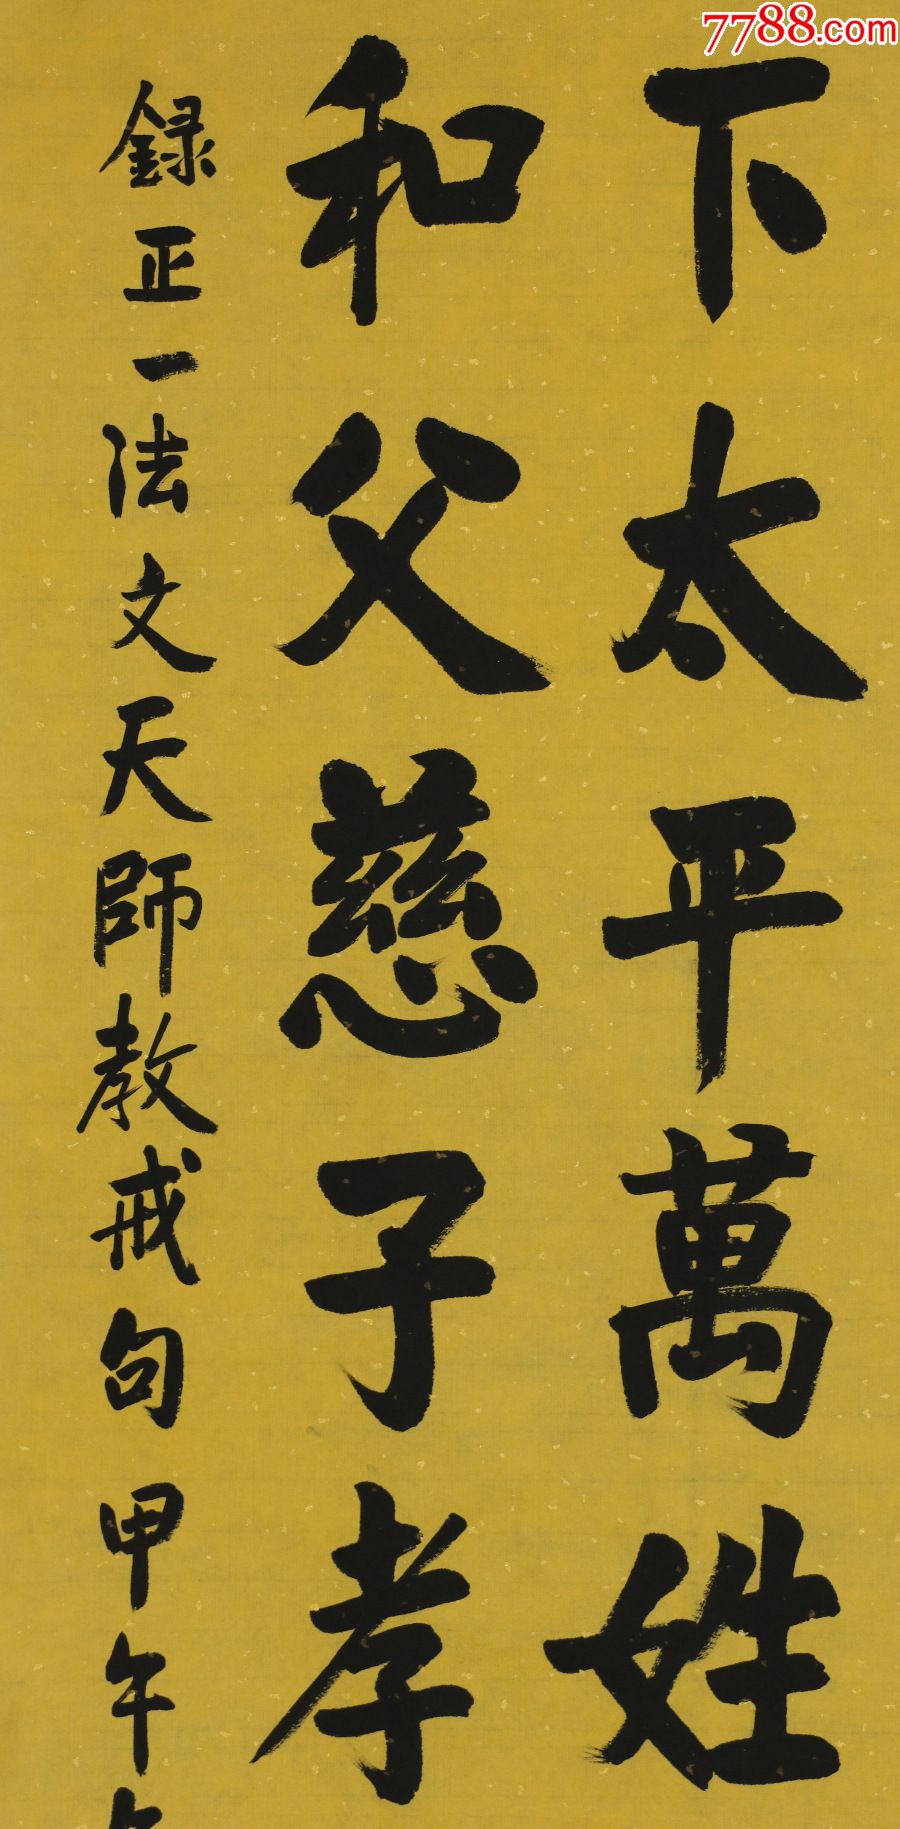 7788.com
下太平萬姓
和父慈子孝
録正一法文天師教戒句甲午年